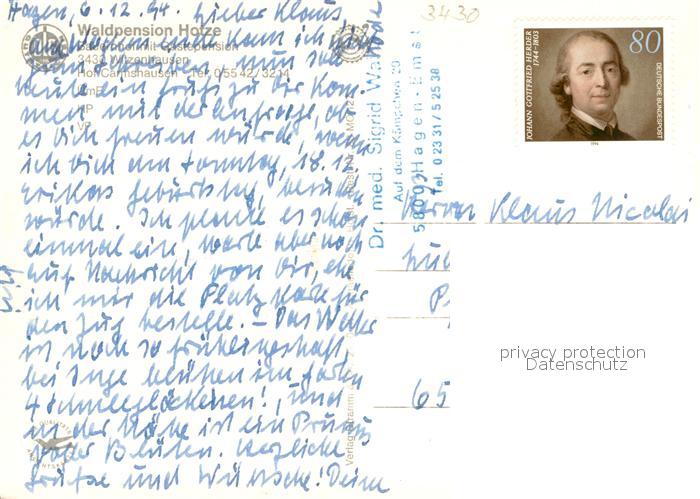 Hagen, 6.12.94. Lieber Klaus
Waldpension Hotze
Bauernhof mit Gästepension
3430 Witzenhausen
Hof Carmshausen · Tel. 0 55 42 / 32 14
heute ein Gruß zu Dir kom-
men mit der Anfrage, ob
es Dich freuen würde, wenn
ich Dich am Sonntag, 18.12.
Erikas Geburtstag, besuchen
würde. Ich plane es schon
einmal ein, warte aber noch
auf Nachricht von Dir, ehe
ich mir die Platzkarte für
den Zug bestelle. – Das Wetter
ist noch so frühlingshaft,
bei Inge blühen im Garten
4 Schneeglöckchen!, und
in der Nähe ist ein Prunus
voller Blüten. Herzliche
Grüße und Wünsche! Deine
3430
Dr. med. Sigrid
Auf dem Kämpchen 20
58093 Hagen-Emst
Tel. 0 23 31 / 5 25 38
JOHANN GOTTFRIED HERDER
1744-1803
80
DEUTSCHE BUNDESPOST
1994
Herrn Klaus Nicolai
65
privacy protection
Datenschutz